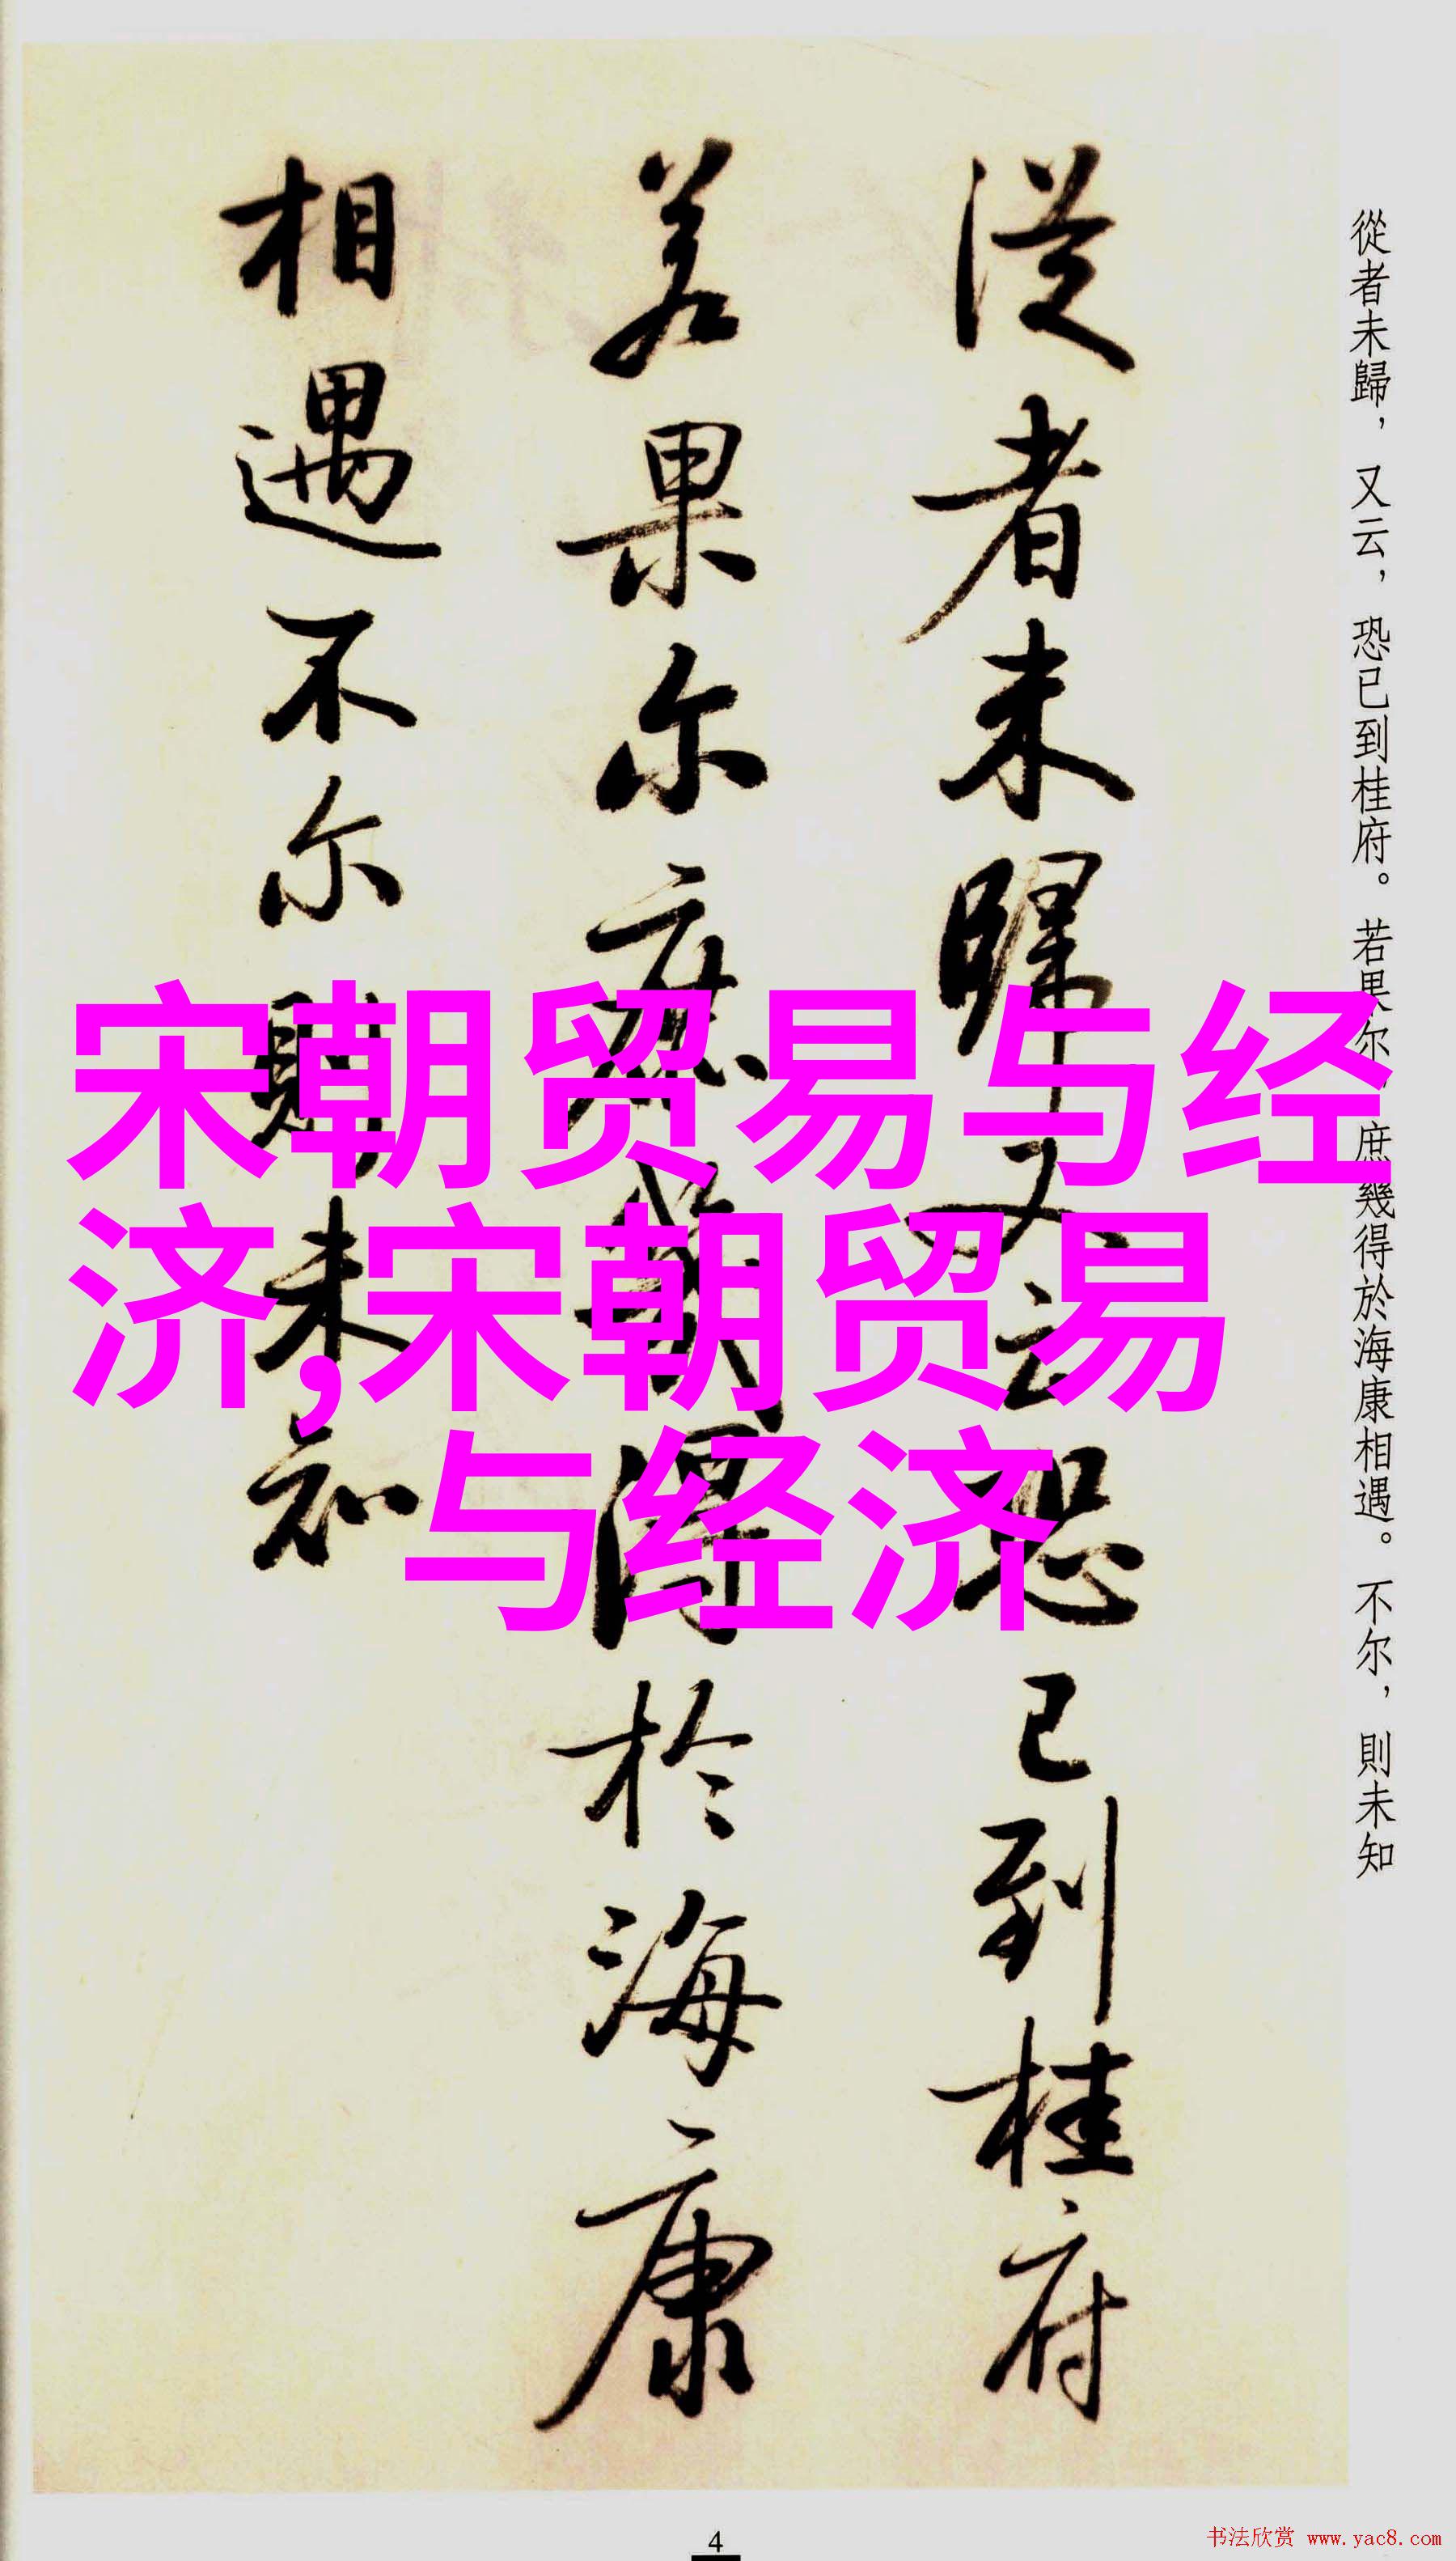 從者未歸，又云，恐已到桂府。若果尔，庶幾得於海康相遇。不尔，則未知
從者未歸又云恐已到桂府
若果尔庶幾得於海康
相遇不尔則未知
宋朝贸易与经
济,宋朝贸易
与经济
4
书法欣赏 www.yac8.com